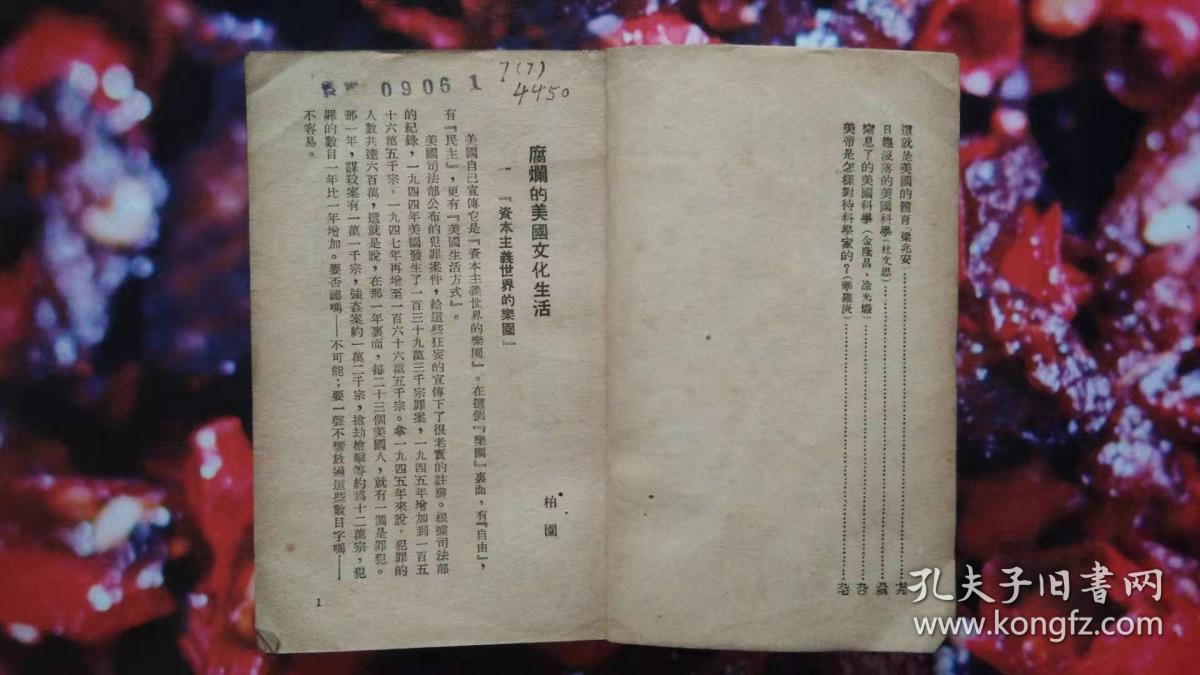 這就是美國的體育（梁兆安）……七九
日趨沒落的美國科學（杜文思）……八五
窒息了的美國科學（金蔭昌、涂光熾）……九〇
美帝是怎樣對待科學家的？（華羅庚）……九七
09061
7(7)
4450
腐爛的美國文化生活
柏園
一 『資本主義世界的樂園』
美國自己宣傳它是『資本主義世界的樂園』。在這個『樂園』裏面，有『自由』，
有『民主』，更有『美國生活方式』。
美國司法部公布的犯罪案件，給這些狂妄的宣傳下了很老實的註脚。根據司法部
的紀錄，一九四四年美國發生了一百三十九萬三千宗罪案，一九四五年增加到一百五
十六萬五千宗。一九四七年再增至一百六十六萬五千宗。拿一九四五年來說，犯罪的
人數共達六百萬，這就是說，在那一年裏面，每二十三個美國人，就有一個是罪犯。
那一年，謀殺案有一萬一千宗，強姦案約一萬二千宗，搶劫槍擊等約爲十二萬宗，犯
罪的數目一年比一年增加。要否認嗎——不可能；要一聲不響放過這些數目字嗎——
不容易。
1
孔夫子旧书网
www.kongfz.com